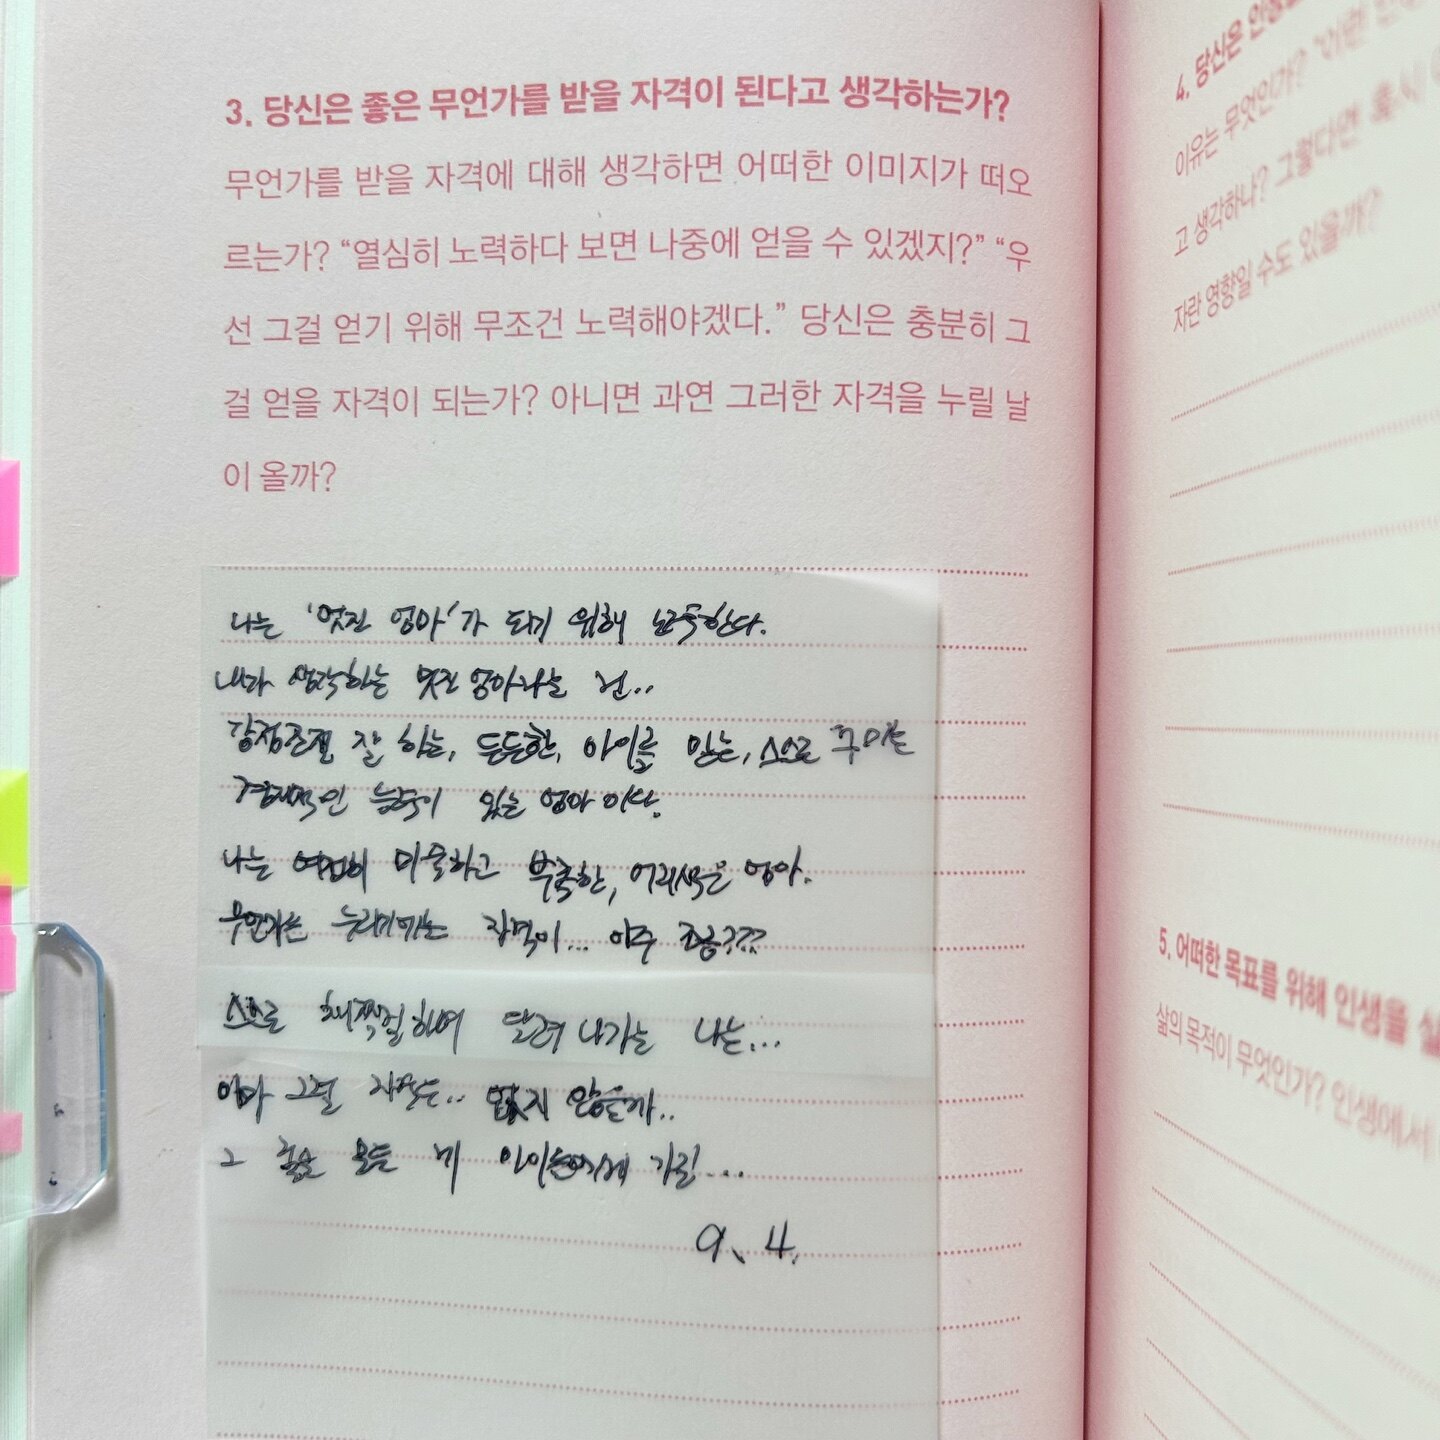 3. 당신은 좋은 무언가를 받을 자격이 된다고 생각하는가?
무언가를 받을 자격에 대해 생각하면 어떠한 이미지가 떠오
르는가? “열심히 노력하다 보면 나중에 얻을 수 있겠지?” “우
선 그걸 얻기 위해 무조건 노력해야겠다.” 당신은 충분히 그
걸 얻을 자격이 되는가? 아니면 과연 그러한 자격을 누릴 날
이 올까?
나는 '멋진 엄마'가 되기 위해 노력한다.
내가 생각하는 멋진 엄마라는 건..
감정조절 잘 하는, 든든한, 아이를 믿는, 스스로 꾸미는
경제적인 능력이 있는 엄마이다.
나는 여전히 미숙하고 부족한, 어리석은 엄마.
무언가를 누리기에는 자격이... 아주 조금???
스스로 채찍질하여 달려 나가는 나는...
아마 그걸 자격은.. 없지 않을까..
그 몫은 모두 내 아이들에게 가길...
9. 4.
4. 당신은
이유는 무엇인가? “이런
고 생각하나? 그렇다면 혹시
자란 영향일 수도 있을까?
5. 어떠한 목표를 위해 인생을
삶의 목적이 무엇인가? 인생에서